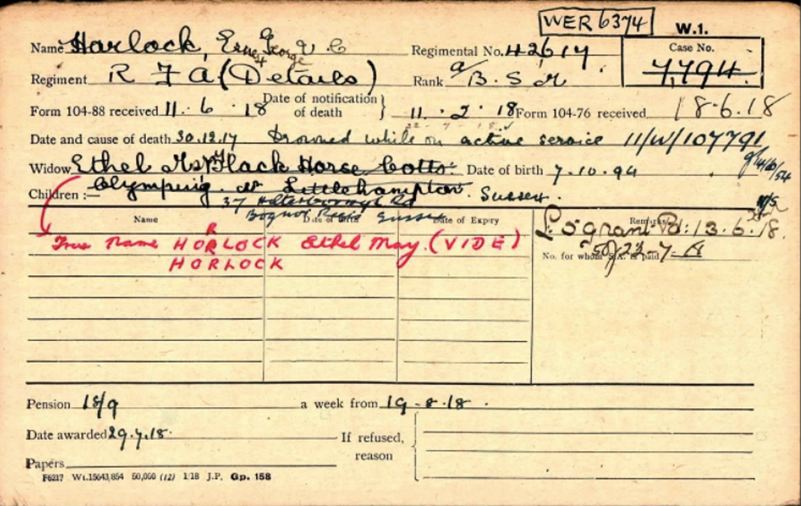 WER 6374 W.1.
Name Harlock, Ernest George V C Regimental No. 42617 Case No.
7,794.
Regiment R F A (Details) Rank a/B. S. M
Form 104-88 received 11. 6 . 18 Date of notification of death } 11 . 2 . 18 Form 104-76 received 18.6.18
Date and cause of death 30.12.17 Drowned while on active service 11/W/107791
Widow Ethel Black Horse Cotts: Date of birth 7.10.94
Children :— Climping. Nr Littlehampton. Sussex.
37 Rd
Bognor Regis Sussex
Name Date of Birth Date of Expiry Remarks
P.O grant Pd: 13.6.18.
True Name HORLOCK Ethel May. (VIDE)
R
No. for whom S.A. is paid 23-7-
HORLOCK
Pension 18/9 a week from 19-8-18.
Date awarded 29.7.18. If refused, reason
Papers
F6237 Wt.15643,864 50,000 (12) 1/18 J.P. Gp. 158